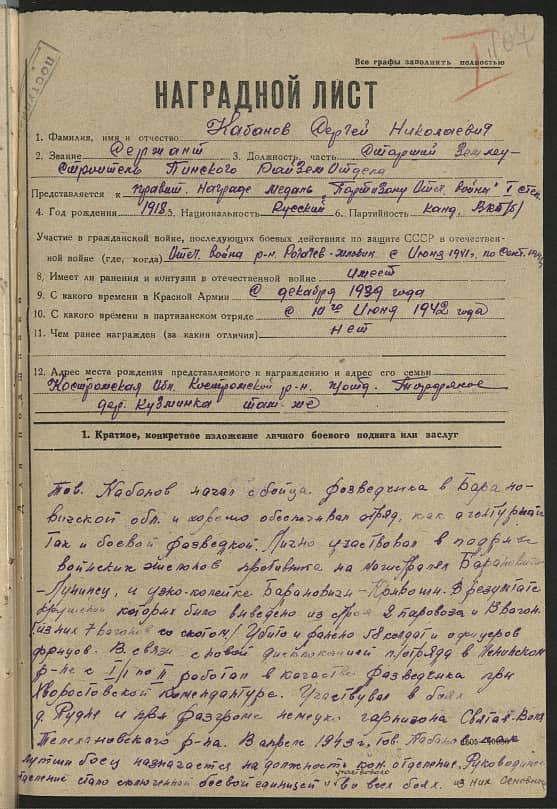 ПОСТУП
107
I
Все графы заполнить полностью
НАГРАДНОЙ ЛИСТ
1. Фамилия, имя и отчество Кабанов Сергей Николаевич
2. Звание Сержант 3. Должность, часть Старший Землеу-
строитель Пинского РайЗемОтдела
Представляется к правит. Награде медаль "Партизану Отеч. войны" I степ.
4. Год рождения 1918 5. Национальность Русский 6. Партийность канд. ВКП(б)
Участие в гражданской войне, последующих боевых действиях по защите СССР в отечествен-
ной войне (где, когда) Отеч. война р-н. Рогачев- с Июня 1941г. по Сент.
8. Имеет ли ранения и контузии в отечественной войне имеет
9. С какого времени в Красной Армии С декабря 1939 года
10. С какого времени в партизанском отряде С 10го Июня 1942 года
11. Чем ранее награжден (за какия отличия) нет
12. Адрес места рождения представляемого к награждению и адрес его семьи
Костромская Обл. Костромской р-н. почтд.
дер. Кузминка там-же
1. Краткое, конкретное изложение личного боевого подвига или заслуг
Тов. Кабанов начал с бойца разведчика в Барано-
вичской обл. и хорошо обеспечивал отряд, как агентурной
так и боевой разведкой. Лично участвовал в подрыве
воинских эшелонов противника на магистралях Барановичи-
-Лунинец и узко-колейке Барановичи- В результате
крушений которых было выведено из строя 2 паровоза и 8 вагон.
(из них 7 вагонов со скотом) Убито и ранено 18 солдат и офицеров
фрицов. В связи с новой дислокацией п/отряда в Ленинском
р-не с I/I по II работал в качестве разведчика при
Хворостовской комендатуре. Участвовал в боях
д. Рудне и при разгроме немецк. гарнизона Святая-Воля
Телехановского р-на. В апреле 1943 г. тов. Кабанов
лутший боец назначается на должность ком. отделения. Руководимое
отделение стало сключенной боевой единицей и участвовало во всех боях. из них Основное